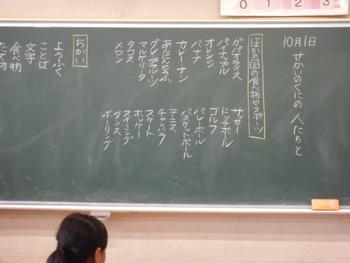 0 1 2 3
10月1日
せかいのくにの人たちと
ほかの国の食べ物やスポーツ
ガパオライス
パイナップル
オレンジ
バナナ
カレー・ナン
グレープフルーツ
マルゲリータ
タコス
メロン
サッカー
ドッチボール
ゴルフ
バレーボール
バスケットボール
テニス
チャンバラ
スケート
ホッケー
スイミング
ダンス
ボーリング
ちがい
ようふく
ことば
文字
食べ物
たて物